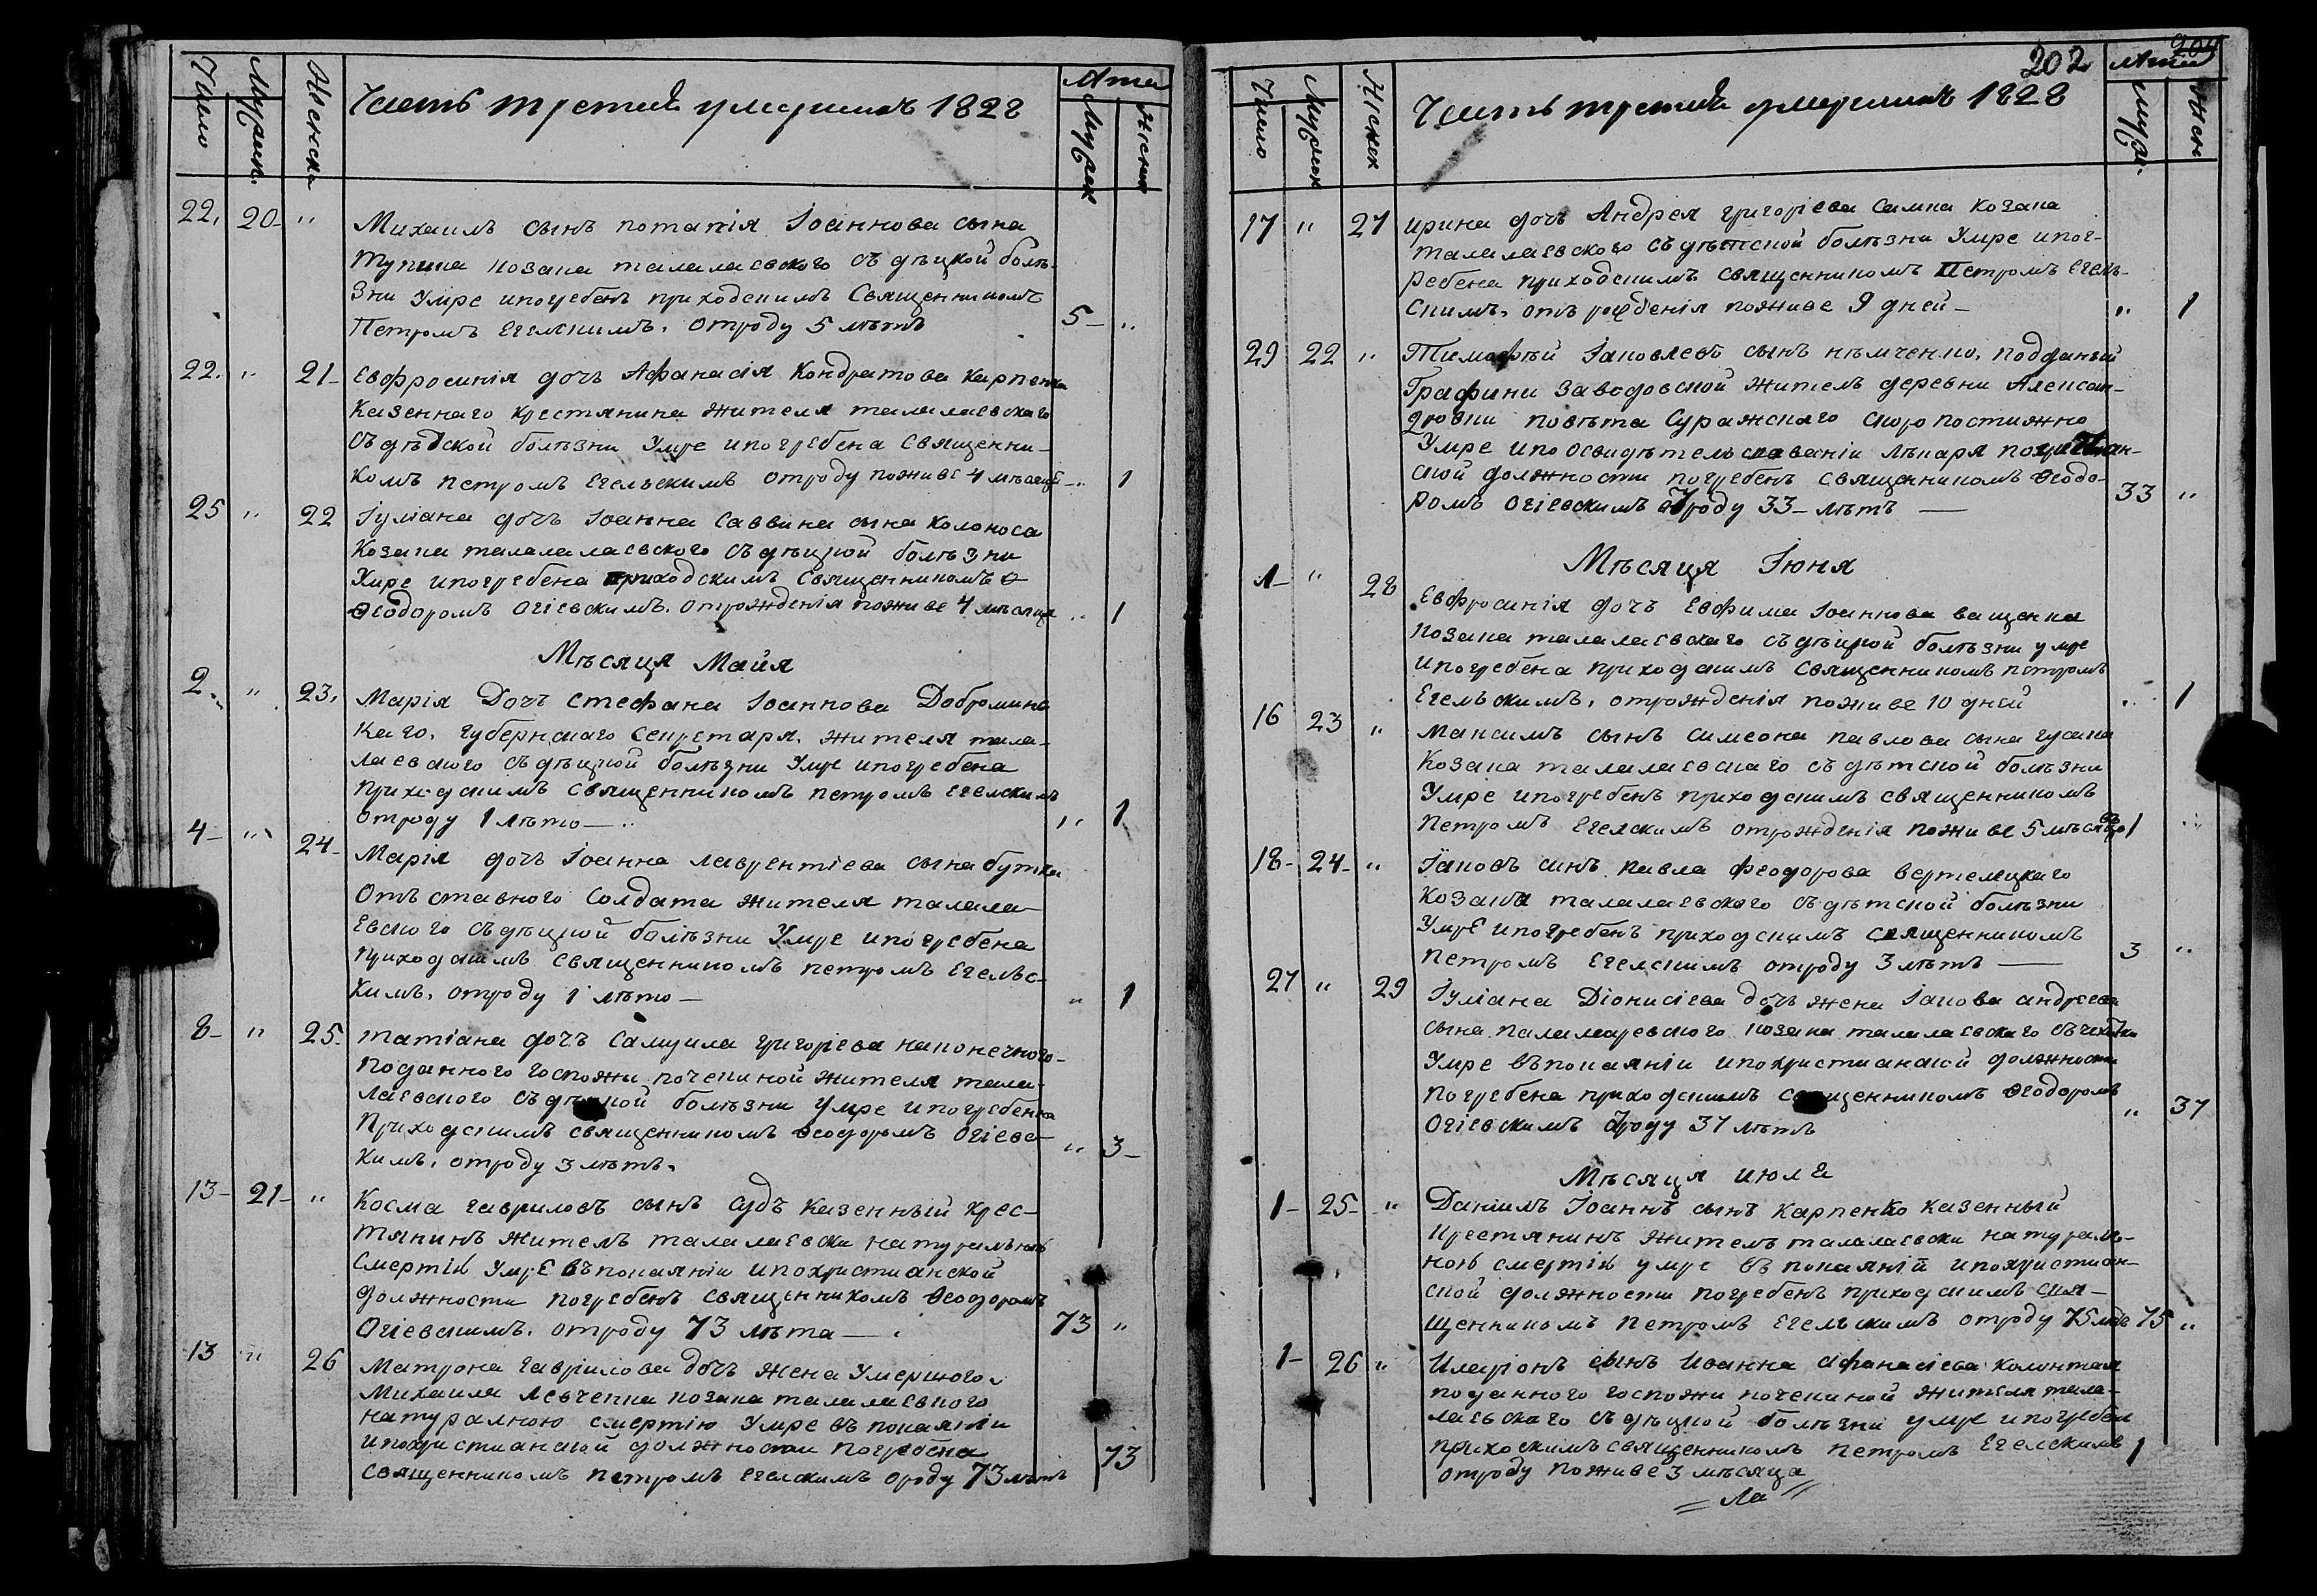 Число
Мужеск.
Женска
Часть третия умерших 1828
Лета
Мужеск
Женск
22. 20 "
Михаилъ сынъ потапія Іоаннова сына
тупина козака талалаевского съ дѣцкой болѣ-
зни Умре и погребенъ приходскимъ Священникомъ
Петромъ Егелскимъ. отроду 5 лѣтъ 5 "
22. " 21
Евфросинія дочь Афанасія Кондратова Карпенка
Казеннаго крестянина жителя талалаевскаго
съ дѣтской болѣзни Умре и погребена Священни-
комъ петромъ Егельскимъ отроду поживе 4 мѣсяцѣ " 1
25 " 22
Іуліана дочь Іоанна Саввина сына колокоса
Козака талалалаевского съ дѣцкой болѣзни
Умре и погребена приходскимъ Священникомъ Ѳ
Ѳеодоромъ Огіевскимъ. отрожденія поживе 4 мѣсяца " 1
Мѣсяця Майя
2. " 23.
Марія Дочъ стефана Іоаннова Добромино
каго. губернскаго секретаря. жителя тала-
лаевского съ дѣцкой болѣзни Умре и погребена
приходскимъ священникомъ петромъ Егелскимъ
отроду 1 лѣто " 1
4 " 24
Марія дочъ Іоанна лаврентіева сына бутка
Отъставного Солдата жителя талала
Евского съ дѣцкой болѣзни Умре и погребена
приходскимъ священникомъ петромъ Егельс-
кимъ. отроду 1 лѣто " 1
8 " 25
татіана дочъ Самуила григоріева наконечного
поданного госпожи почекиной жителя тала-
лаевского съ дѣцкой болѣзни Умре и погребенна
Приходскимъ священникомъ Ѳеодоромъ Огіевс-
кимъ. отроду 3 лѣтъ. " 3
13 21 "
Косма гавриловъ сынъ судъ казенный крес-
тянинъ жителъ талалаевски натуральною
смертію умре въ покаяніи и по христианской
должности погребенъ священникомъ Ѳеодоромъ
Огіевскимъ. отроду 73 лѣта 73 "
13 " 26
Матрона гаврилова дочъ жена Умершого
Михаила левченка козака талалаевского
натуралною смертію Умре въ покаяніи
и по христианской должности погребена
священникомъ петромъ егелскимъ ороду 73 лѣтъ 73
204
202
Число
Мужеск
Женск
Часть третия умерших 1828
Лета
Мужс.
Жен
17 " 27
ирина дочъ Андрея григоріева Самка Козака
талалаевского съ дѣтской болѣзни Умре и пог-
ребена приходскимъ священникомъ Петромъ Егель-
скимъ. отъ рожденія поживе 9 дней " 1
29 22 "
Тимофѣй Іаковлевъ сынъ немченко. подданый
Графини Заводовской жителъ деревни Алексан-
дровки повѣта Суражского скоропостижно
Умре и по освидѣтельствованіи лѣкаря по христиан-
ской должности погребенъ священникомъ Ѳеодо-
ромъ Огіевскимъ отроду 33 лѣтъ 33 "
Мѣсяця Іюня
1 " 28
Евфросинія дочъ Евфима Іоаннова ващенка
козака талалаевскаго съ дѣцкой болѣзни умре
и погребена приходскимъ священникомъ петромъ
Егельскимъ. отрожденія поживе 10 дней " 1
16 23 "
Максимъ сынъ симеона павлова сына гусака
Козака талалаевскаго съ дѣтской болѣзни
Умре и погребенъ приходскимъ священникомъ
петромъ Егелскимъ отрожденія поживе 5 мѣсяцовъ 1 "
18 24 "
Іаковъ синъ павла феодорова вертелецкаго
козака талалаевского съ дѣтской болѣзни
Умре и погребенъ приходскимъ священникомъ
петромъ Егелскимъ отроду 3 лѣтъ 3 "
27 " 29
Іуліана Діонисіева дочъ жена Іакова андреева
сына паламаревского козака талалаевского съ чехотки
Умре въ покаяніи и по христианской должности
погребена приходскимъ священникомъ Ѳеодоромъ
Огіевскимъ отроду 37 лѣтъ " 37
Мѣсяця июля
1 25 "
Даніилъ Іоаннъ сынъ карпенко казенный
крестянинъ жителъ талалаевски натурал-
ною смертію умре въ покаяній и по христиан-
ской должности погребенъ приходскимъ свя-
щенникомъ петромъ Егельскимъ отроду 75 лѣтъ 75 "
1 26 "
Иларіонъ сынъ Иоанна афанасіева колонтая
поданного госпожи почекиной жителя тала-
лаевскаго съ дѣцкой болѣзни умре и погребен
прихоскимъ священникомъ петромъ Егелскимъ 1
отроду поживе 3 мѣсяца
Ла